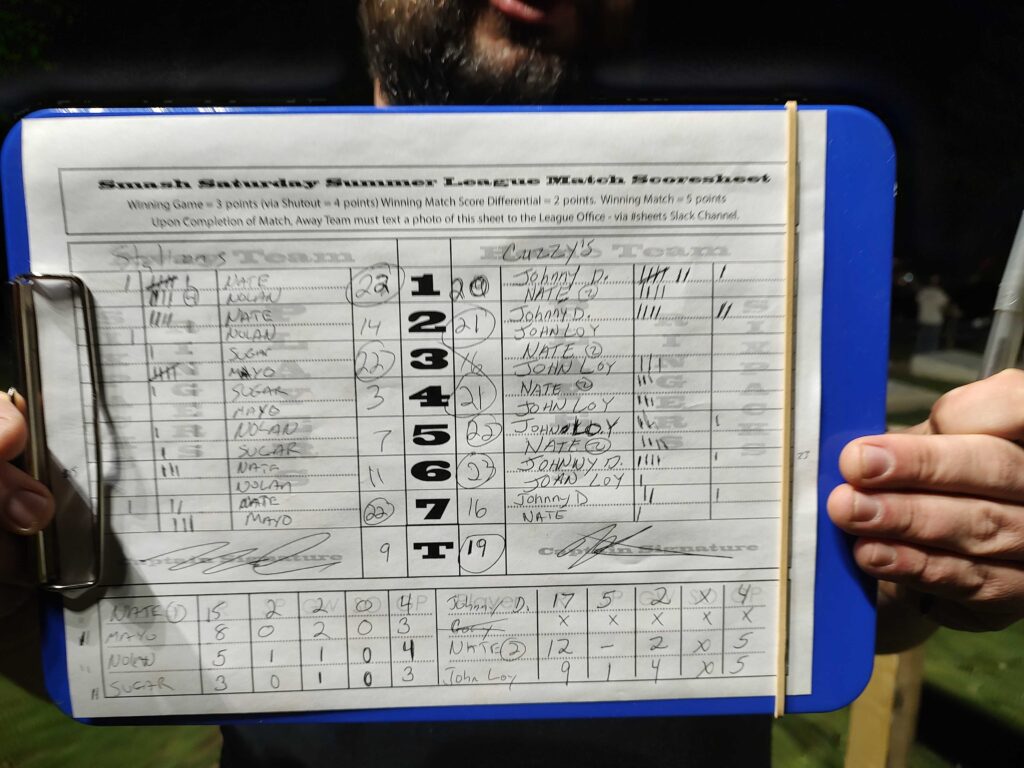 Smash Saturday Summer League Match Scoresheet
Winning Game = 3 points (via Shutout = 4 points) Winning Match Score Differential = 2 points. Winning Match = 5 points
Upon Completion of Match, Away Team must text a photo of this sheet to the League Office - via #sheets Slack Channel.
Team Cuzzy's Team
NATE 22 1 20 Johnny D.
NOLAN NATE 2
NATE 14 2 21 Johnny D.
NOLAN JOHN LOY
SUGAR 22 3 16 NATE 2
MAYO JOHN LOY
SUGAR 3 4 21 NATE 2
MAYO JOHN LOY
NOLAN 7 5 22 JOHN LOY
SUGAR NATE 2
NATE 11 6 JOHNNY D.
NOLAN JOHN LOY
NATE 22 7 16 Johnny D
MAYO NATE
Captain Signature 9 T 19 Captain Signature
NATE 1 15 2 2 0 4 Johnny D. 17 5 2 x 4
MAYO 8 0 2 0 3 x x x x x
NOLAN 5 1 1 0 4 NATE 2 12 - 2 x 5
SUGAR 3 0 1 0 3 John Loy 9 1 4 x 5